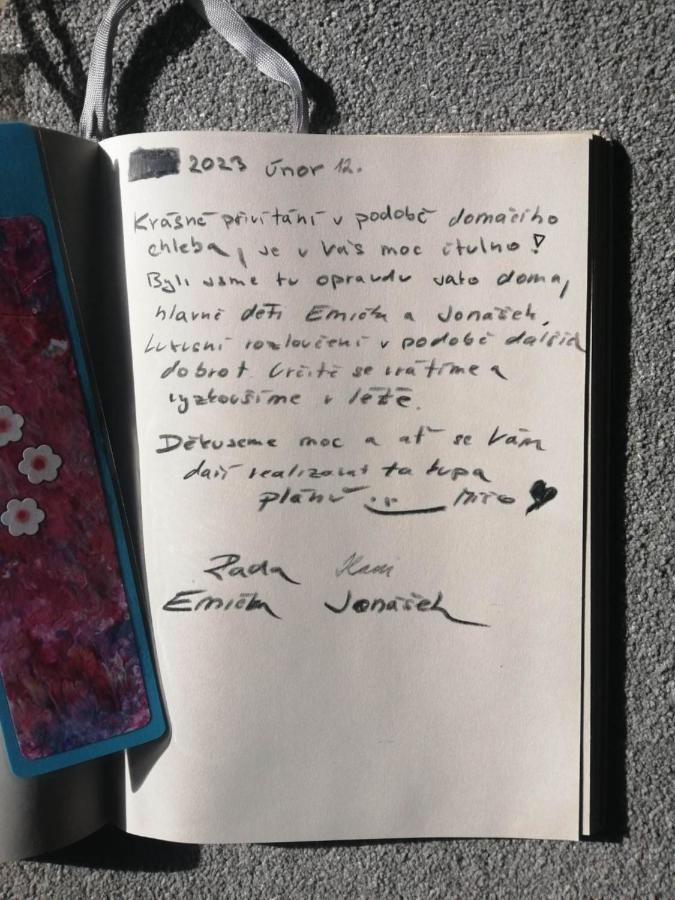 2023 únor 12.
Krásné přivítání v podobě domácího
chleba, je u Vás moc útulno!
Byli jsme tu opravdu jako doma,
hlavně děti Emička a Jonášek.
Luxusní rozloučení v podobě dalších
dobrot. Určitě se vrátíme a
vyzkoušíme v létě.
Děkujeme moc a ať se Vám
daří realizovat ta kupa
plánů
Rada Hani
Emička Jonášek